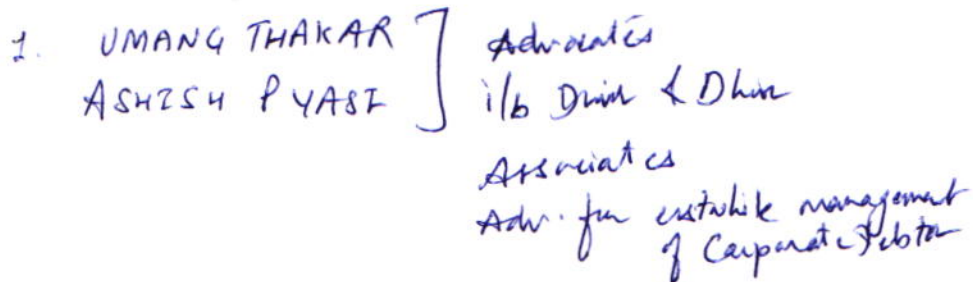 1. UMANG THAKAR ] Advocates
ASHISH PYASI ] i/b Dhir & Dhir
Associates
Adv. for erstwhile management
of Corporate Debtor